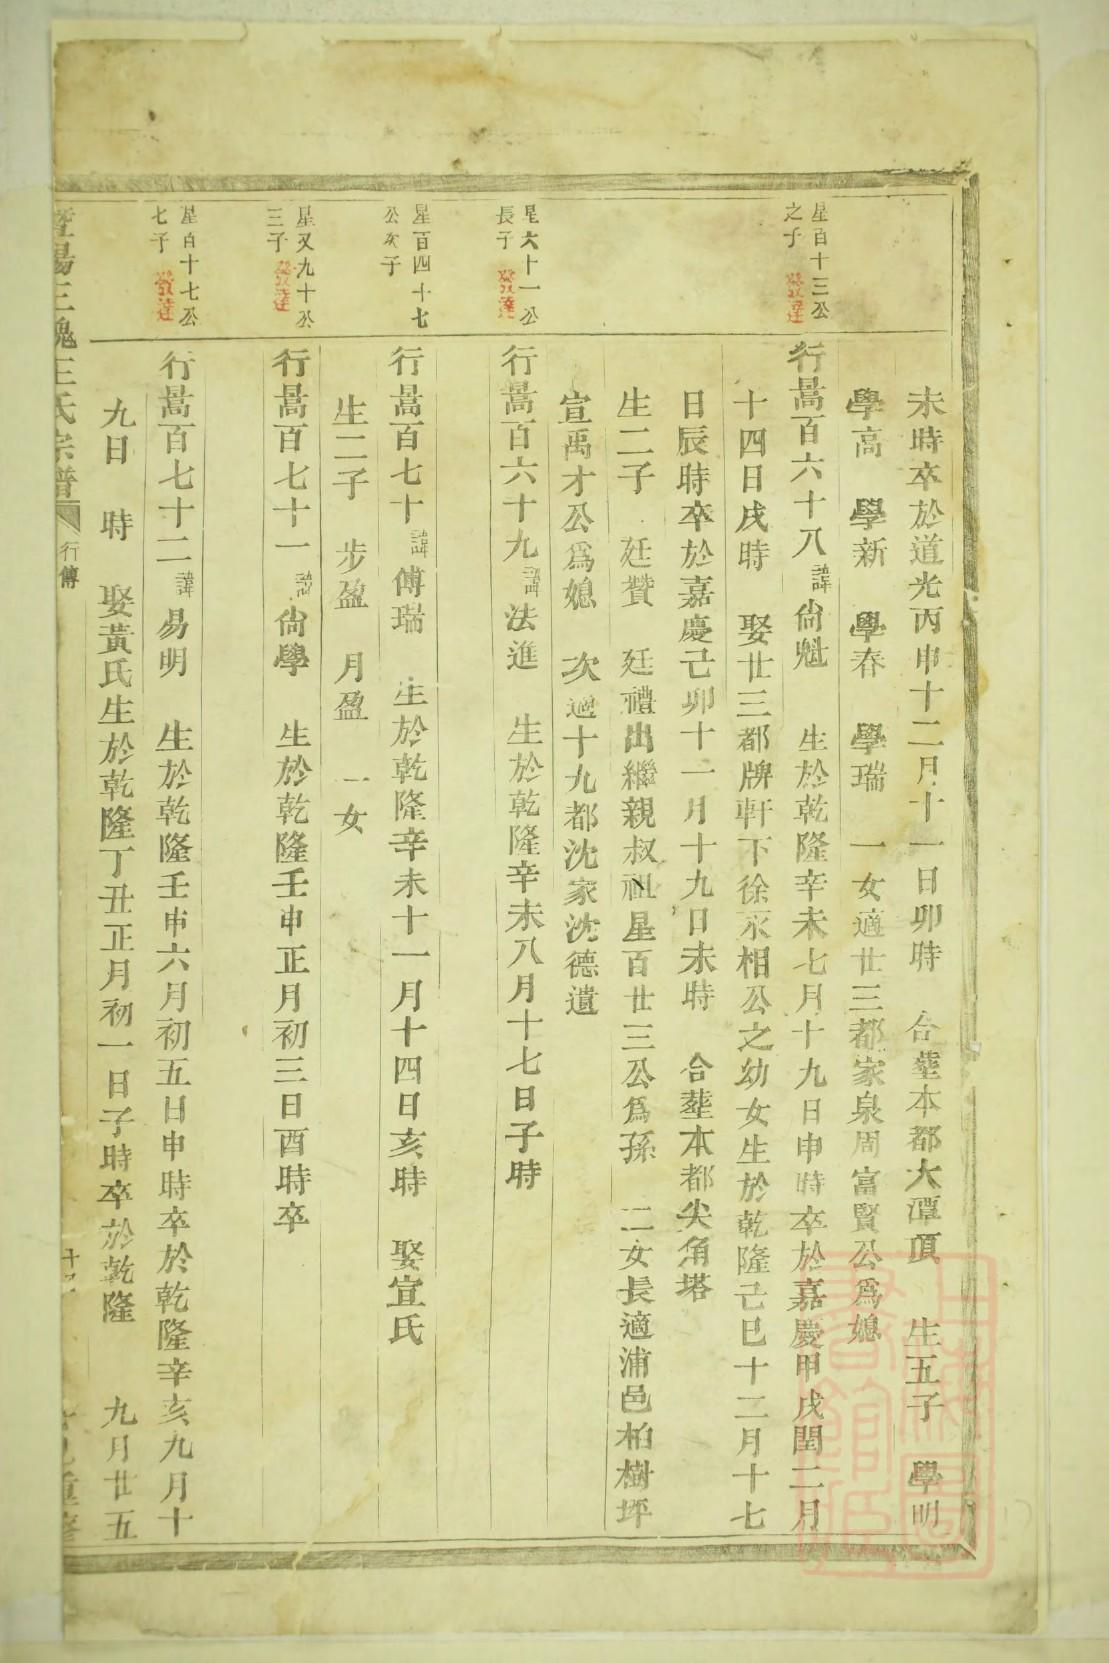 未時卒於道光丙申十二月十一日卯時　合塟本都大潭頂　生五子　學明
學高　學新　學春　學瑞　一女適廿三都家泉周富賢公爲媳
星百十三公
之子　發達
行暠百六十八諱尙魁　生於乾隆辛未七月十九日申時卒於嘉慶甲戌閏二月
十四日戌時　娶廿三都牌軒下徐永相公之幼女生於乾隆己巳十二月十七
日辰時卒於嘉慶己卯十一月十九日未時　合塟本都尖角塔
生二子　廷贊　廷禮出繼親叔祖星百廿三公爲孫　二女長適浦邑柏樹坪
宣禹才公爲媳　次適十九都沈家沈德遺
星六十一公
長子　發達
行暠百六十九諱法進　生於乾隆辛未八月十七日子時
星百四十七
公次子
行暠百七十諱傅瑞　生於乾隆辛未十一月十四日亥時　娶宣氏
生二子　步盈　月盈　一女
星又九十公
三子　發達
行暠百七十一諱尙學　生於乾隆壬申正月初三日酉時卒
星百十七公
七子　發達
行暠百七十二諱易明　生於乾隆壬申六月初五日申時卒於乾隆辛亥九月十
九日　時　娶黃氏生於乾隆丁丑正月初一日子時卒於乾隆　九月廿五
暨陽三槐王氏宗譜　行傳